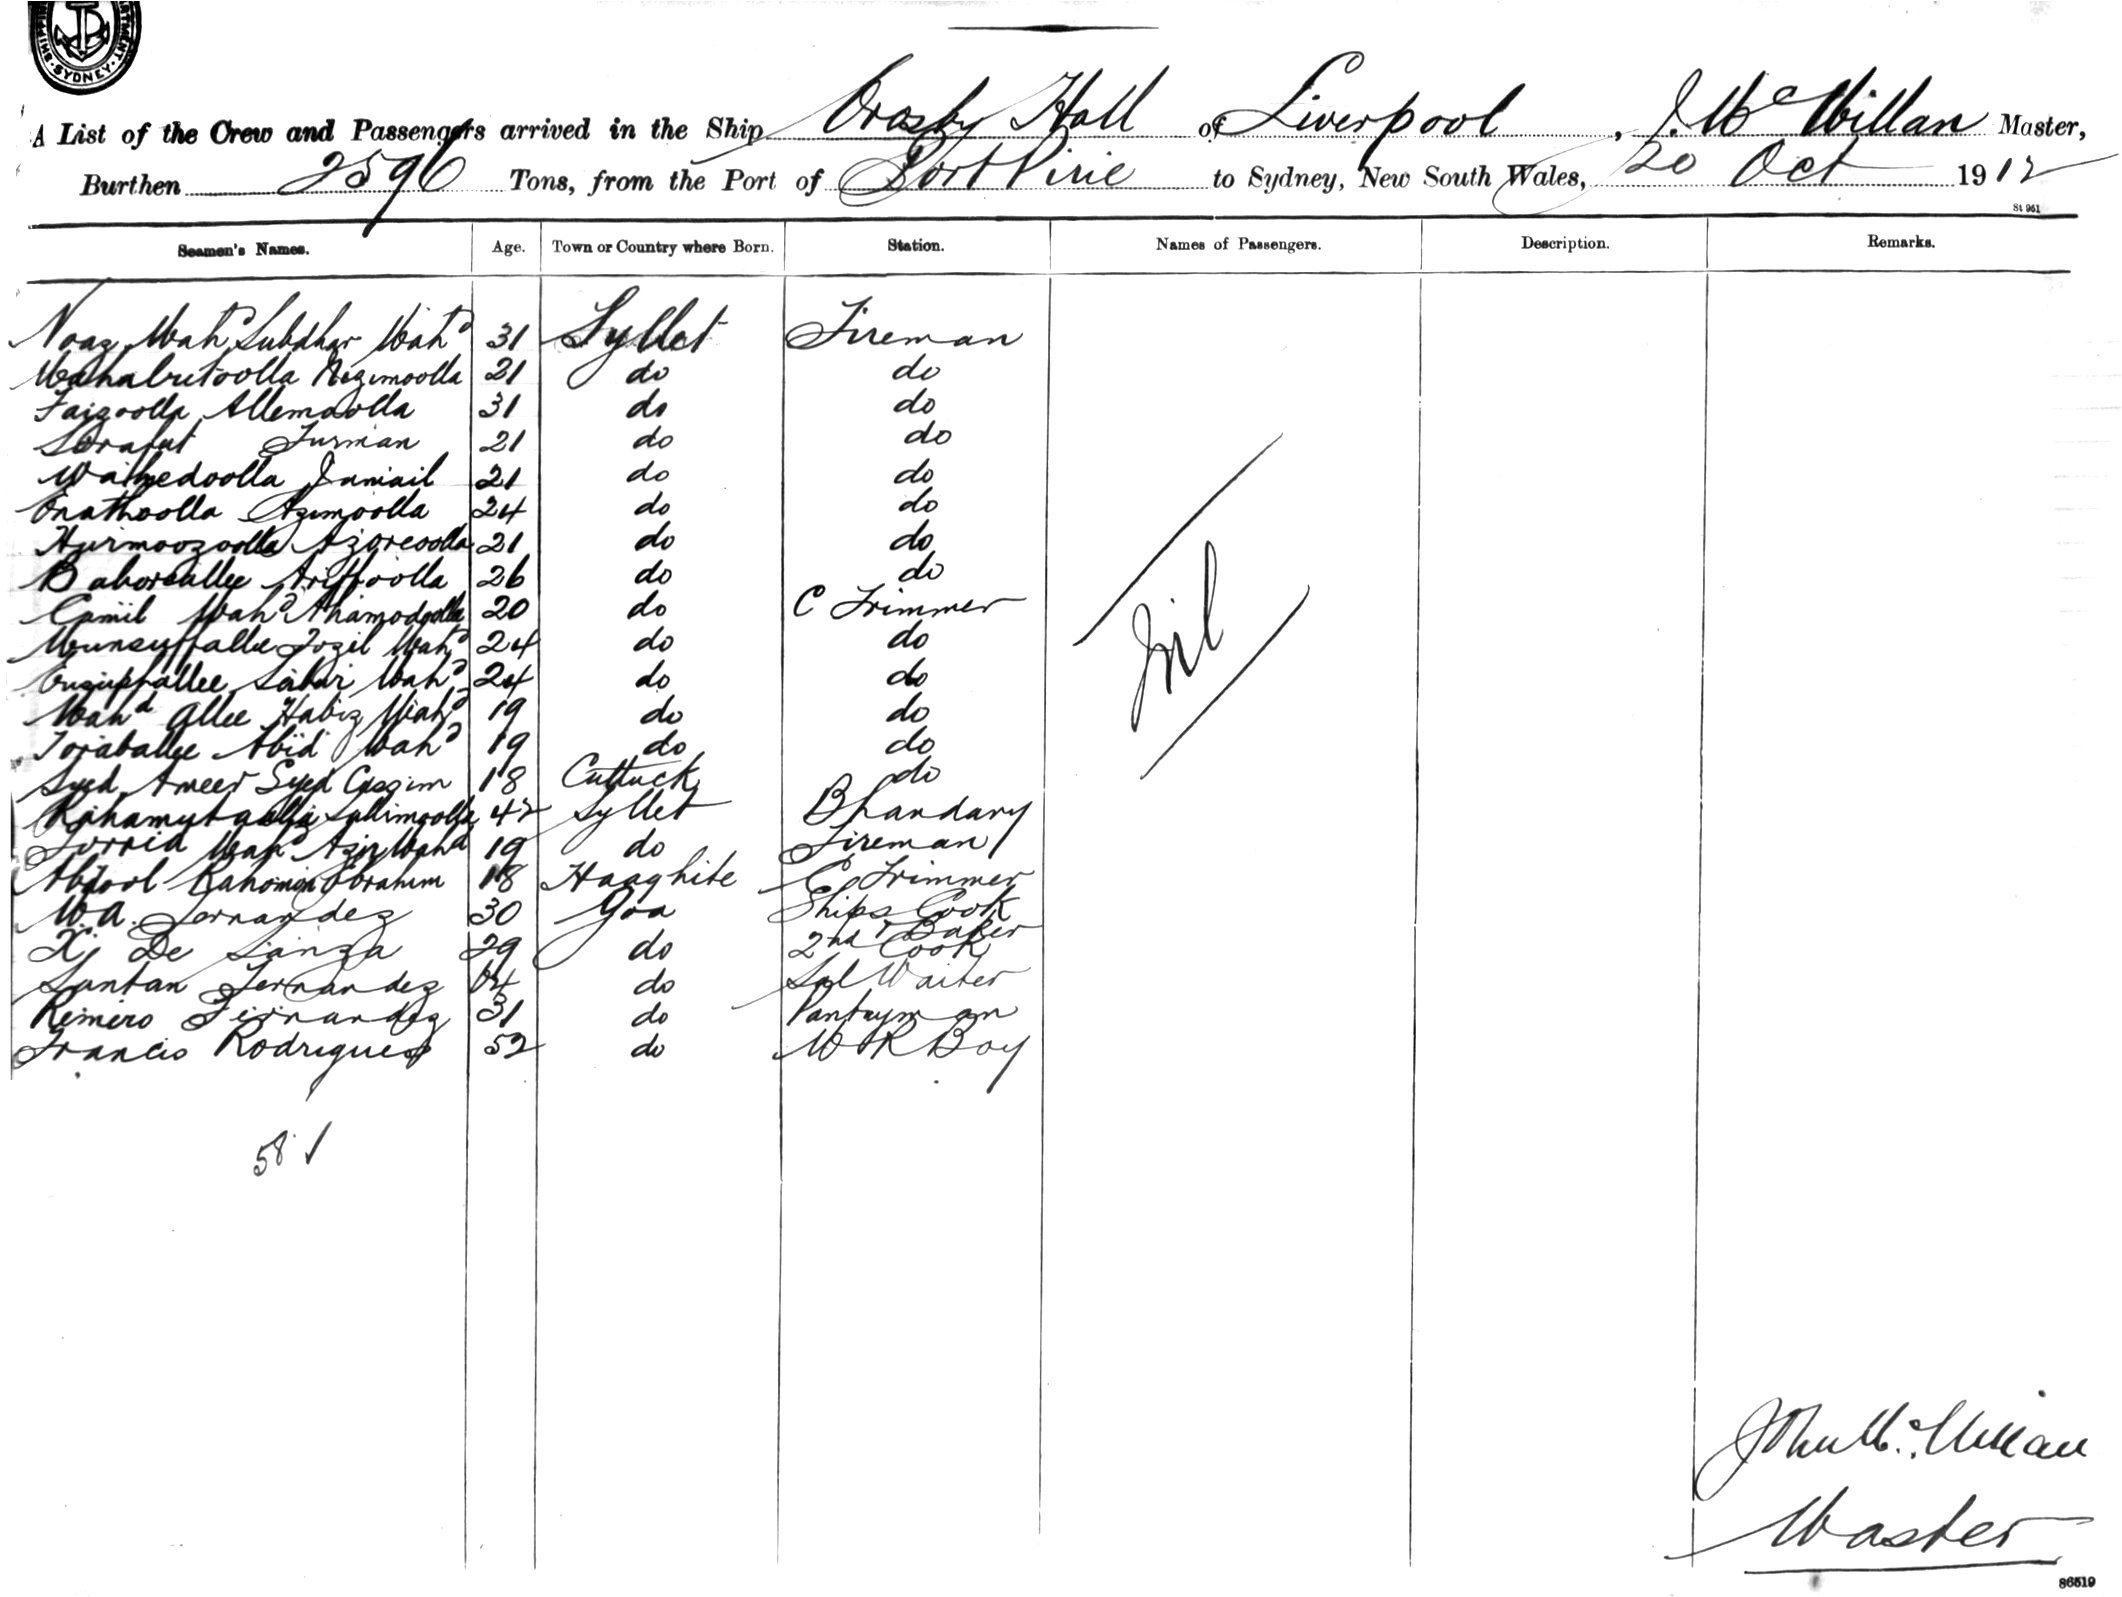 SYDNEY
A List of the Crew and Passengers arrived in the Ship Crosby Hall of Liverpool, J. McMillan Master,
Burthen 2596 Tons, from the Port of Port Pirie to Sydney, New South Wales, 20 Oct 1912
St 961
Seamen's Names. Age. Town or Country where Born. Station. Names of Passengers. Description. Remarks.
Noaz Mahd Subdhar Mahd 31 Syllet Fireman
Mahabutoolla Nezimoolla 21 do do
Faizoolla Allemoolla 31 do do
Sorafut Turman 21 do do
Waihedoolla Jumail 21 do do
Enathoolla Azimoolla 24 do do
Hurmoozoolla Azoreoolla 21 do do
Baboreallee Ariffoolla 26 do do
Camil Mahd Ahamodoolla 20 do C Trimmer
Munsuffallee Fozil Mahd 24 do do
Eusuphallee Sabir Mahd 24 do do
Mahd Allee Habiz Mahd 19 do do
Toraballee Abid Mahd 19 do do
Syed Ameer Syed Cassim 18 Cuttuck do
Rahamutoolla Sallimoolla 42 Syllet Bhandary
Forrid Mahd Azir Mahd 19 do Fireman
Abdool Rahoman Ibrahim 18 Haaghite C Trimmer
M.A. Fernandez 30 Goa Ships Cook & Baker
X. De Sanza 29 do 2nd Cook
Santan Fernandez 24 do Sal Waiter
Remiro Fernandez 31 do Pantryman
Francis Rodrigues 52 do M R Boy
Nil
58 ✓
John McMillan
Master
86519